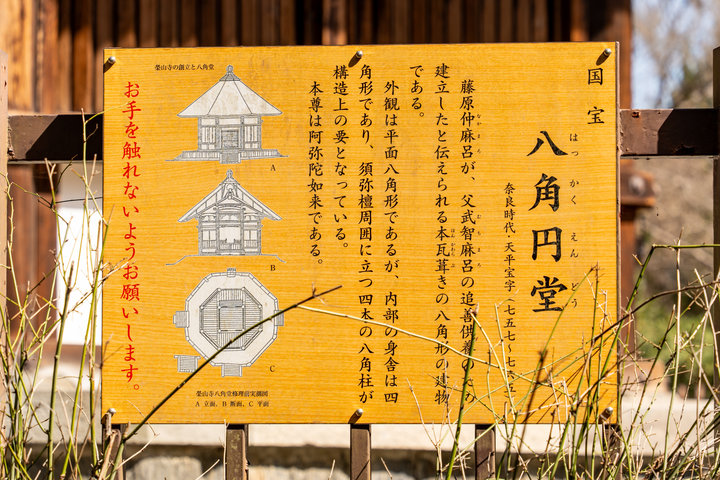 国宝
八角円堂
はっかくえんどう
奈良時代・天平宝字（七五七～七六五
藤原仲麻呂が、父武智麻呂の追善供養のため
なかまろ
むちまろ
建立したと伝えられる本瓦葺きの八角形の建物
ほんがわらぶ
である。
外観は平面八角形であるが、内部の身舎は四
角形であり、須弥壇周囲に立つ四本の八角柱が
構造上の要となっている。
本尊は阿弥陀如来である。
栄山寺の創立と八角堂
A
B
C
栄山寺八角堂修理前実測図
A 立面、B 断面、C 平面
お手を触れないようお願いします。